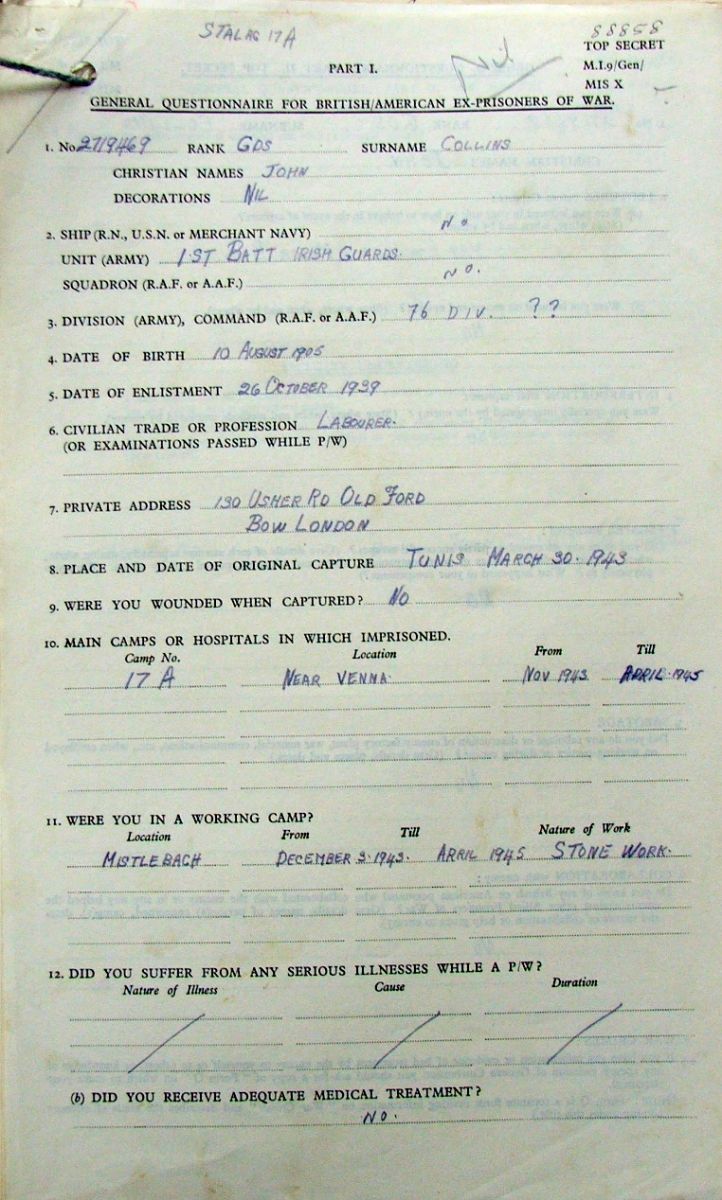 STALAG 17A
Nil
88858
TOP SECRET
PART I.
M.I.9/Gen/
MIS X
GENERAL QUESTIONNAIRE FOR BRITISH/AMERICAN EX-PRISONERS OF WAR.
1. No. 2719469 RANK GDS SURNAME COLLINS
CHRISTIAN NAMES JOHN
DECORATIONS NIL
2. SHIP (R.N., U.S.N. or MERCHANT NAVY) NO
UNIT (ARMY) 1ST BATT IRISH GUARDS.
SQUADRON (R.A.F. or A.A.F.) NO.
3. DIVISION (ARMY), COMMAND (R.A.F. or A.A.F.) 76 DIV. ??
4. DATE OF BIRTH 10 AUGUST 1905
5. DATE OF ENLISTMENT 26 OCTOBER 1939
6. CIVILIAN TRADE OR PROFESSION LABOURER.
(OR EXAMINATIONS PASSED WHILE P/W)
7. PRIVATE ADDRESS 130 USHER RD OLD FORD
BOW LONDON
8. PLACE AND DATE OF ORIGINAL CAPTURE TUNIS MARCH 30. 1943
9. WERE YOU WOUNDED WHEN CAPTURED? NO
10. MAIN CAMPS OR HOSPITALS IN WHICH IMPRISONED.
Camp No. Location From Till
17 A NEAR VENNA. NOV 1943 APRIL. 1945
11. WERE YOU IN A WORKING CAMP?
Location From Till Nature of Work
MISTLEBACH DECEMBER 3. 1943. APRIL 1945 STONE WORK.
12. DID YOU SUFFER FROM ANY SERIOUS ILLNESSES WHILE A P/W?
Nature of Illness Cause Duration
(b) DID YOU RECEIVE ADEQUATE MEDICAL TREATMENT?
NO.